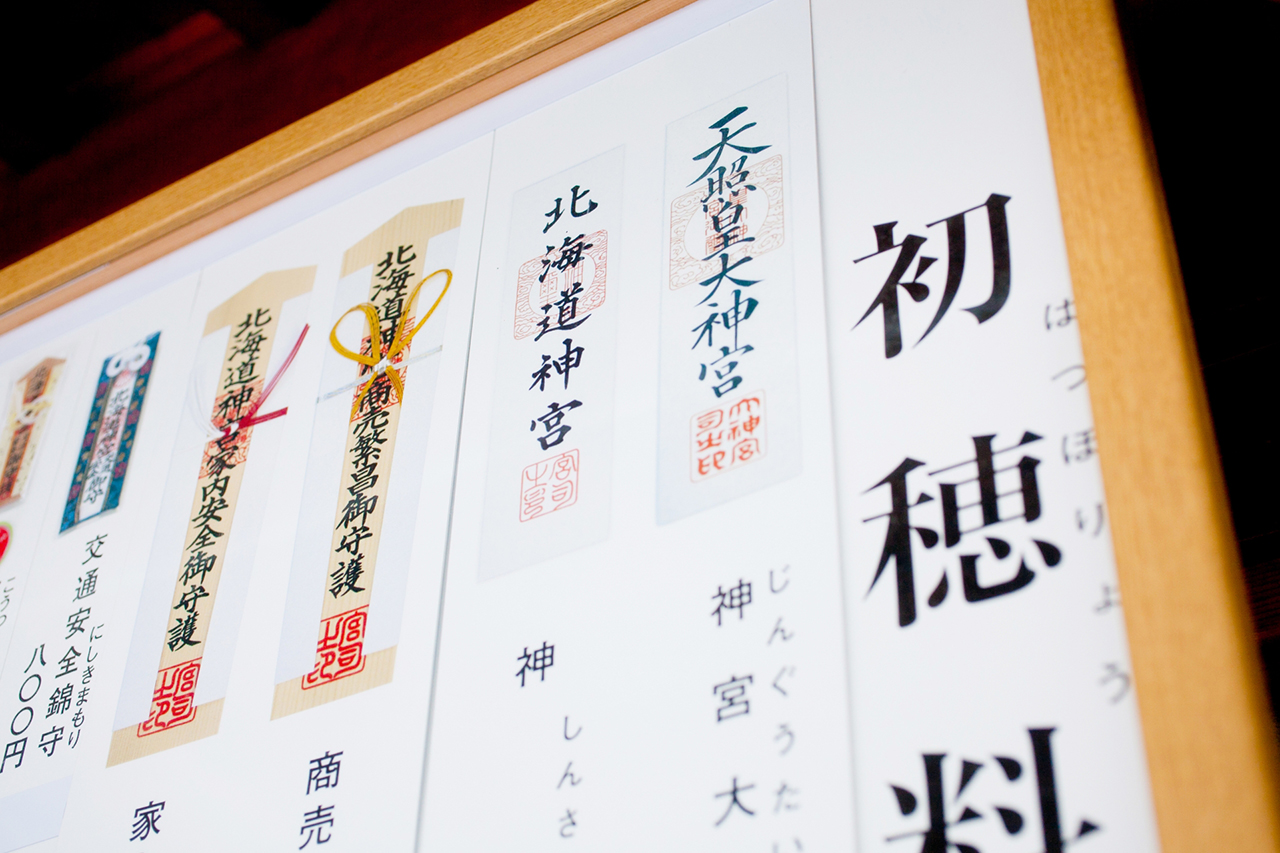 初穂料
はつほりょう
天照皇大神宮
大神宮司之印
神宮大
じんぐうたい
北海道神宮
宮司之印
神
しんさ
北海道神 商売繁昌御守護
宮司之印
商売
北海道神宮家内安全御守護
宮司之印
家
交通安全錦守
にしきまもり
八〇〇円
こうつ